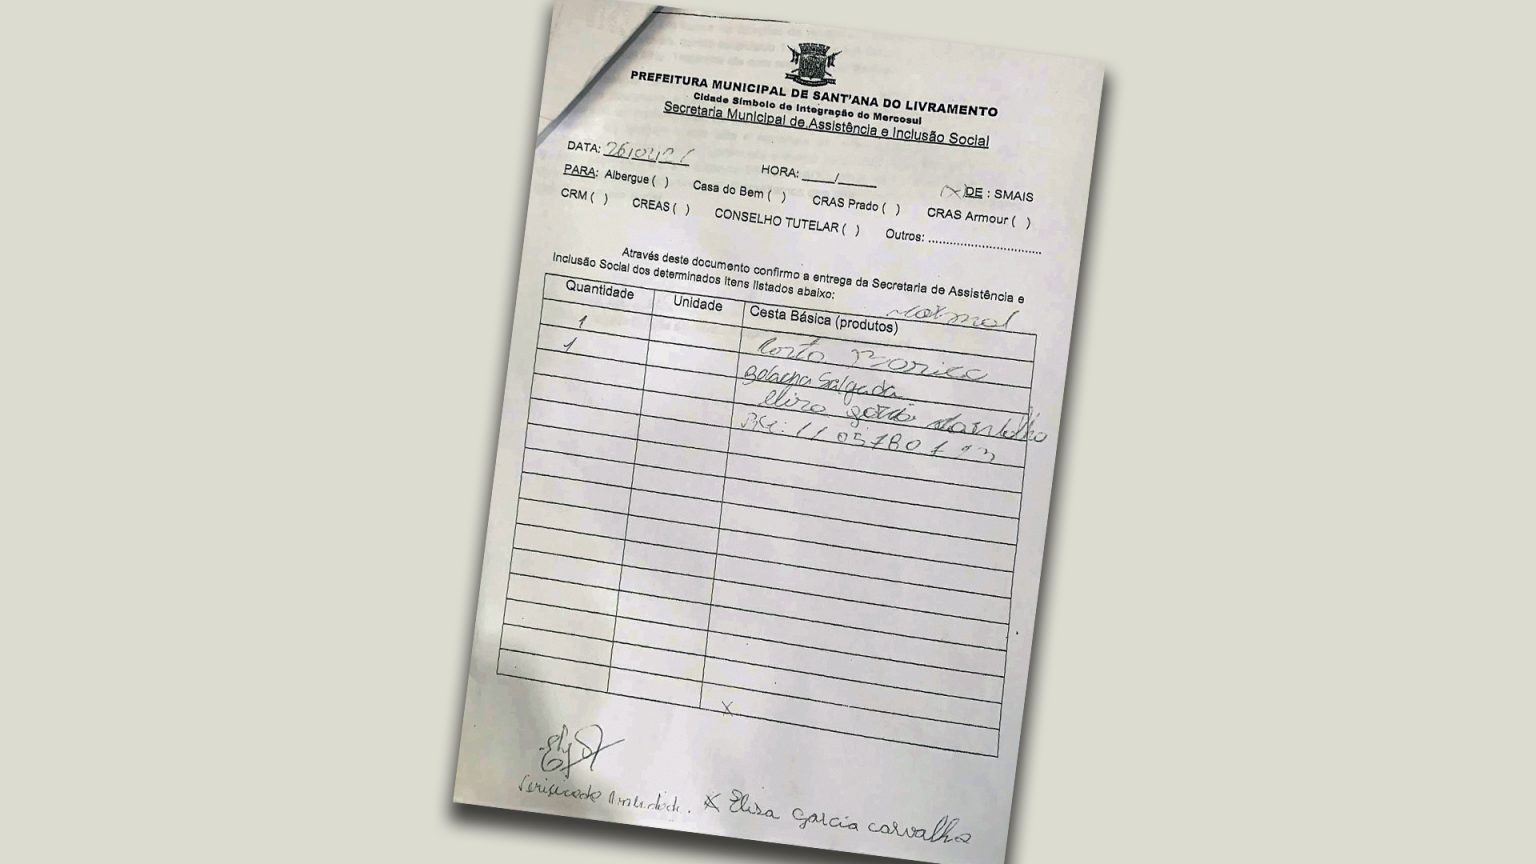 PREFEITURA MUNICIPAL DE SANT'ANA DO LIVRAMENTO
Cidade Símbolo de Integração do Mercosul
Secretaria Municipal de Assistência e Inclusão Social
DATA: HORA: ____/____ (X) DE : SMAIS
PARA: Albergue ( ) Casa do Bem ( ) CRAS Prado ( ) CRAS Armour ( )
CRM ( ) CREAS ( ) CONSELHO TUTELAR ( ) Outros: ................................
Através deste documento confirmo a entrega da Secretaria de Assistência e
Inclusão Social dos determinados itens listados abaixo:
Quantidade Unidade Cesta Básica (produtos)
1
1 Bolacha Salgada
X
X Elisa Garcia Carvalho